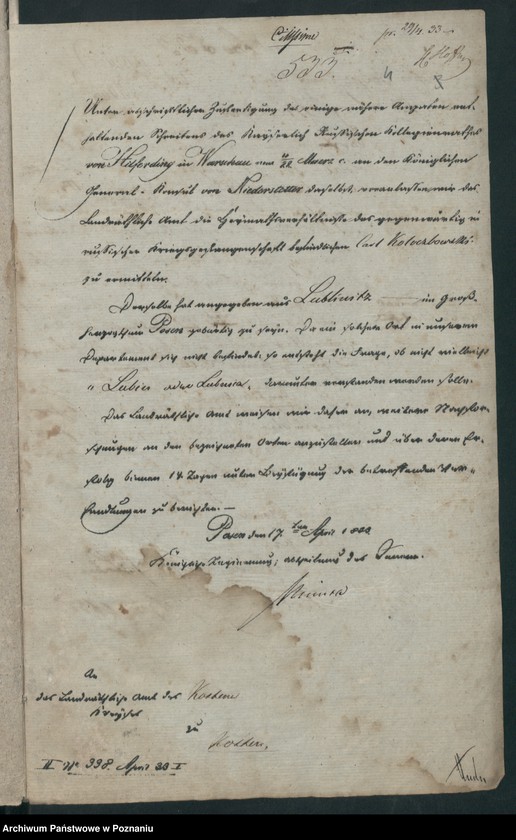 Citissime
pr. 22/4. 33.
533.
Unter abschriftlicher Zufertigung des einige nähere Angaben ent-
haltenden Schreibens des Kayserlich Russischen Kollegienrathes
von Helferding in Warschau vom Maerz c. an den Königlichen
General-Konsul von Niederstetter daselbst, veranlassen wir das
Landräthliche Amt die Heimathsverhältnisse des gegenwärtig in
russischer Kriegsgefangenschaft befindlichen Carl
zu ermitteln.
Derselbe hat angegeben aus Lubliewitz im Groß-
herzogthum Posen gebürtig zu seyn. Da ein solcher Ort in unserem
Departement sich nicht befindet; so entsteht die Frage, ob nicht vielleicht
Lubin oder Lubnica, darunter verstanden werden solle.
Das Landräthliche Amt weisen wir daher an, weitere Nachfor-
schungen an den bezeichneten Orten anzustellen und über deren Er-
folg binnen 14 Tagen unter Beyfügung der betreffenden Ver-
handlungen zu berichten. —
Posen den 17. ten April 1833
Königliche Regierung; Abtheilung des Innern.
An
das Landräthliche Amt des Kostener
Kreyses
zu
Kosten.
II No 338. April 33 I
Archiwum Państwowe w Poznaniu